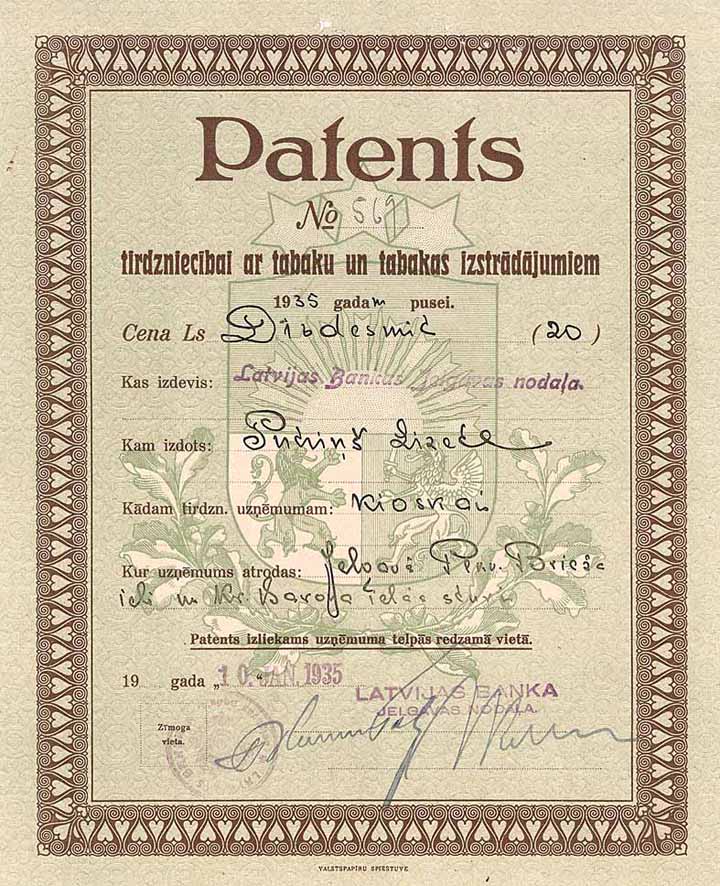 Patents
No 569
tirdzniecībai ar tabaku un tabakas izstrādājumiem
1935 gadam pusei.
Cena Ls Divdesmit (20)
Kas izdevis: Latvijas Bankas Jelgavas nodaļa.
Kam izdots: Pučiņš Lizete
Kādam tirdzn. uzņēmumam: Kioskai
Kur uzņēmums atrodas: Jelgavā Pļkv. Brieža
ielas stūrī
Patents izliekams uzņēmuma telpās redzamā vietā.
19 gada „10. JAN. 1935
LATVIJAS BANKA
JELGAVAS NODAĻA.
Zīmoga
vieta.
VALSTSPAPĪRU SPIESTUVE